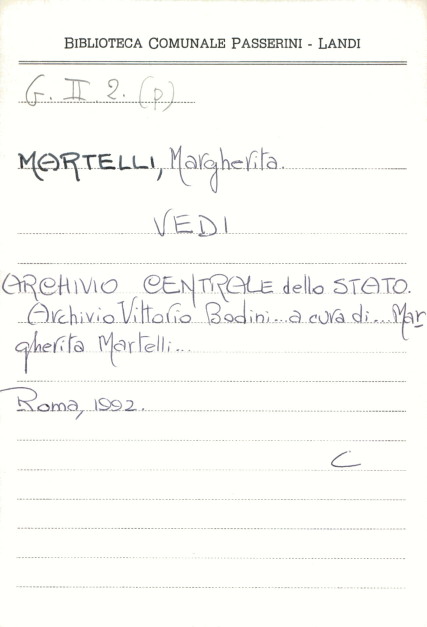 BIBLIOTECA COMUNALE PASSERINI - LANDI
G. II. 2. (p)
MARTELLI, Margherita.
VEDI
ARCHIVIO CENTRALE dello STATO.
Archivio Vittorio Bodini... a cura di... Mar
gherita Martelli...
Roma, 1992.
C